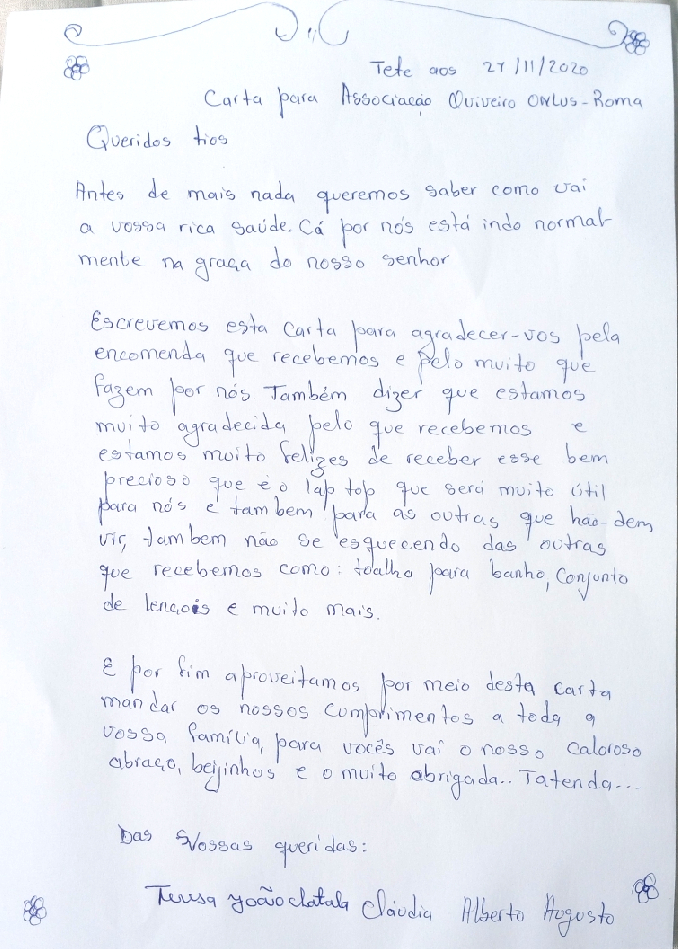 Tete aos 27/11/2020
Carta para Associação Quiveiro ONLUS-Roma
Queridos tios
Antes de mais nada queremos saber como vai
a vossa rica saúde. Cá por nós está indo normal-
mente na graça do nosso senhor
Escrevemos esta carta para agradecer-vos pela
encomenda que recebemos e pelo muito que
fazem por nós Também dizer que estamos
muito agradecida pelo que recebemos e
estamos muito felizes de receber esse bem
precioso que é o lap top que será muito útil
para nós e tambem para as outras que hão-dem
vir, tambem não se esquecendo das outras
que recebemos como: toalha para banho, conjunto
de lençois e muito mais.
E por fim aproveitamos por meio desta carta
mandar os nossos comprimentos a toda a
vossa família, para vocês vai o nosso caloroso
abraço, beijinhos e o muito abrigada.. Tatenda...
Das Vossas queridas:
Teresa João Cláudia Alberto Augusto